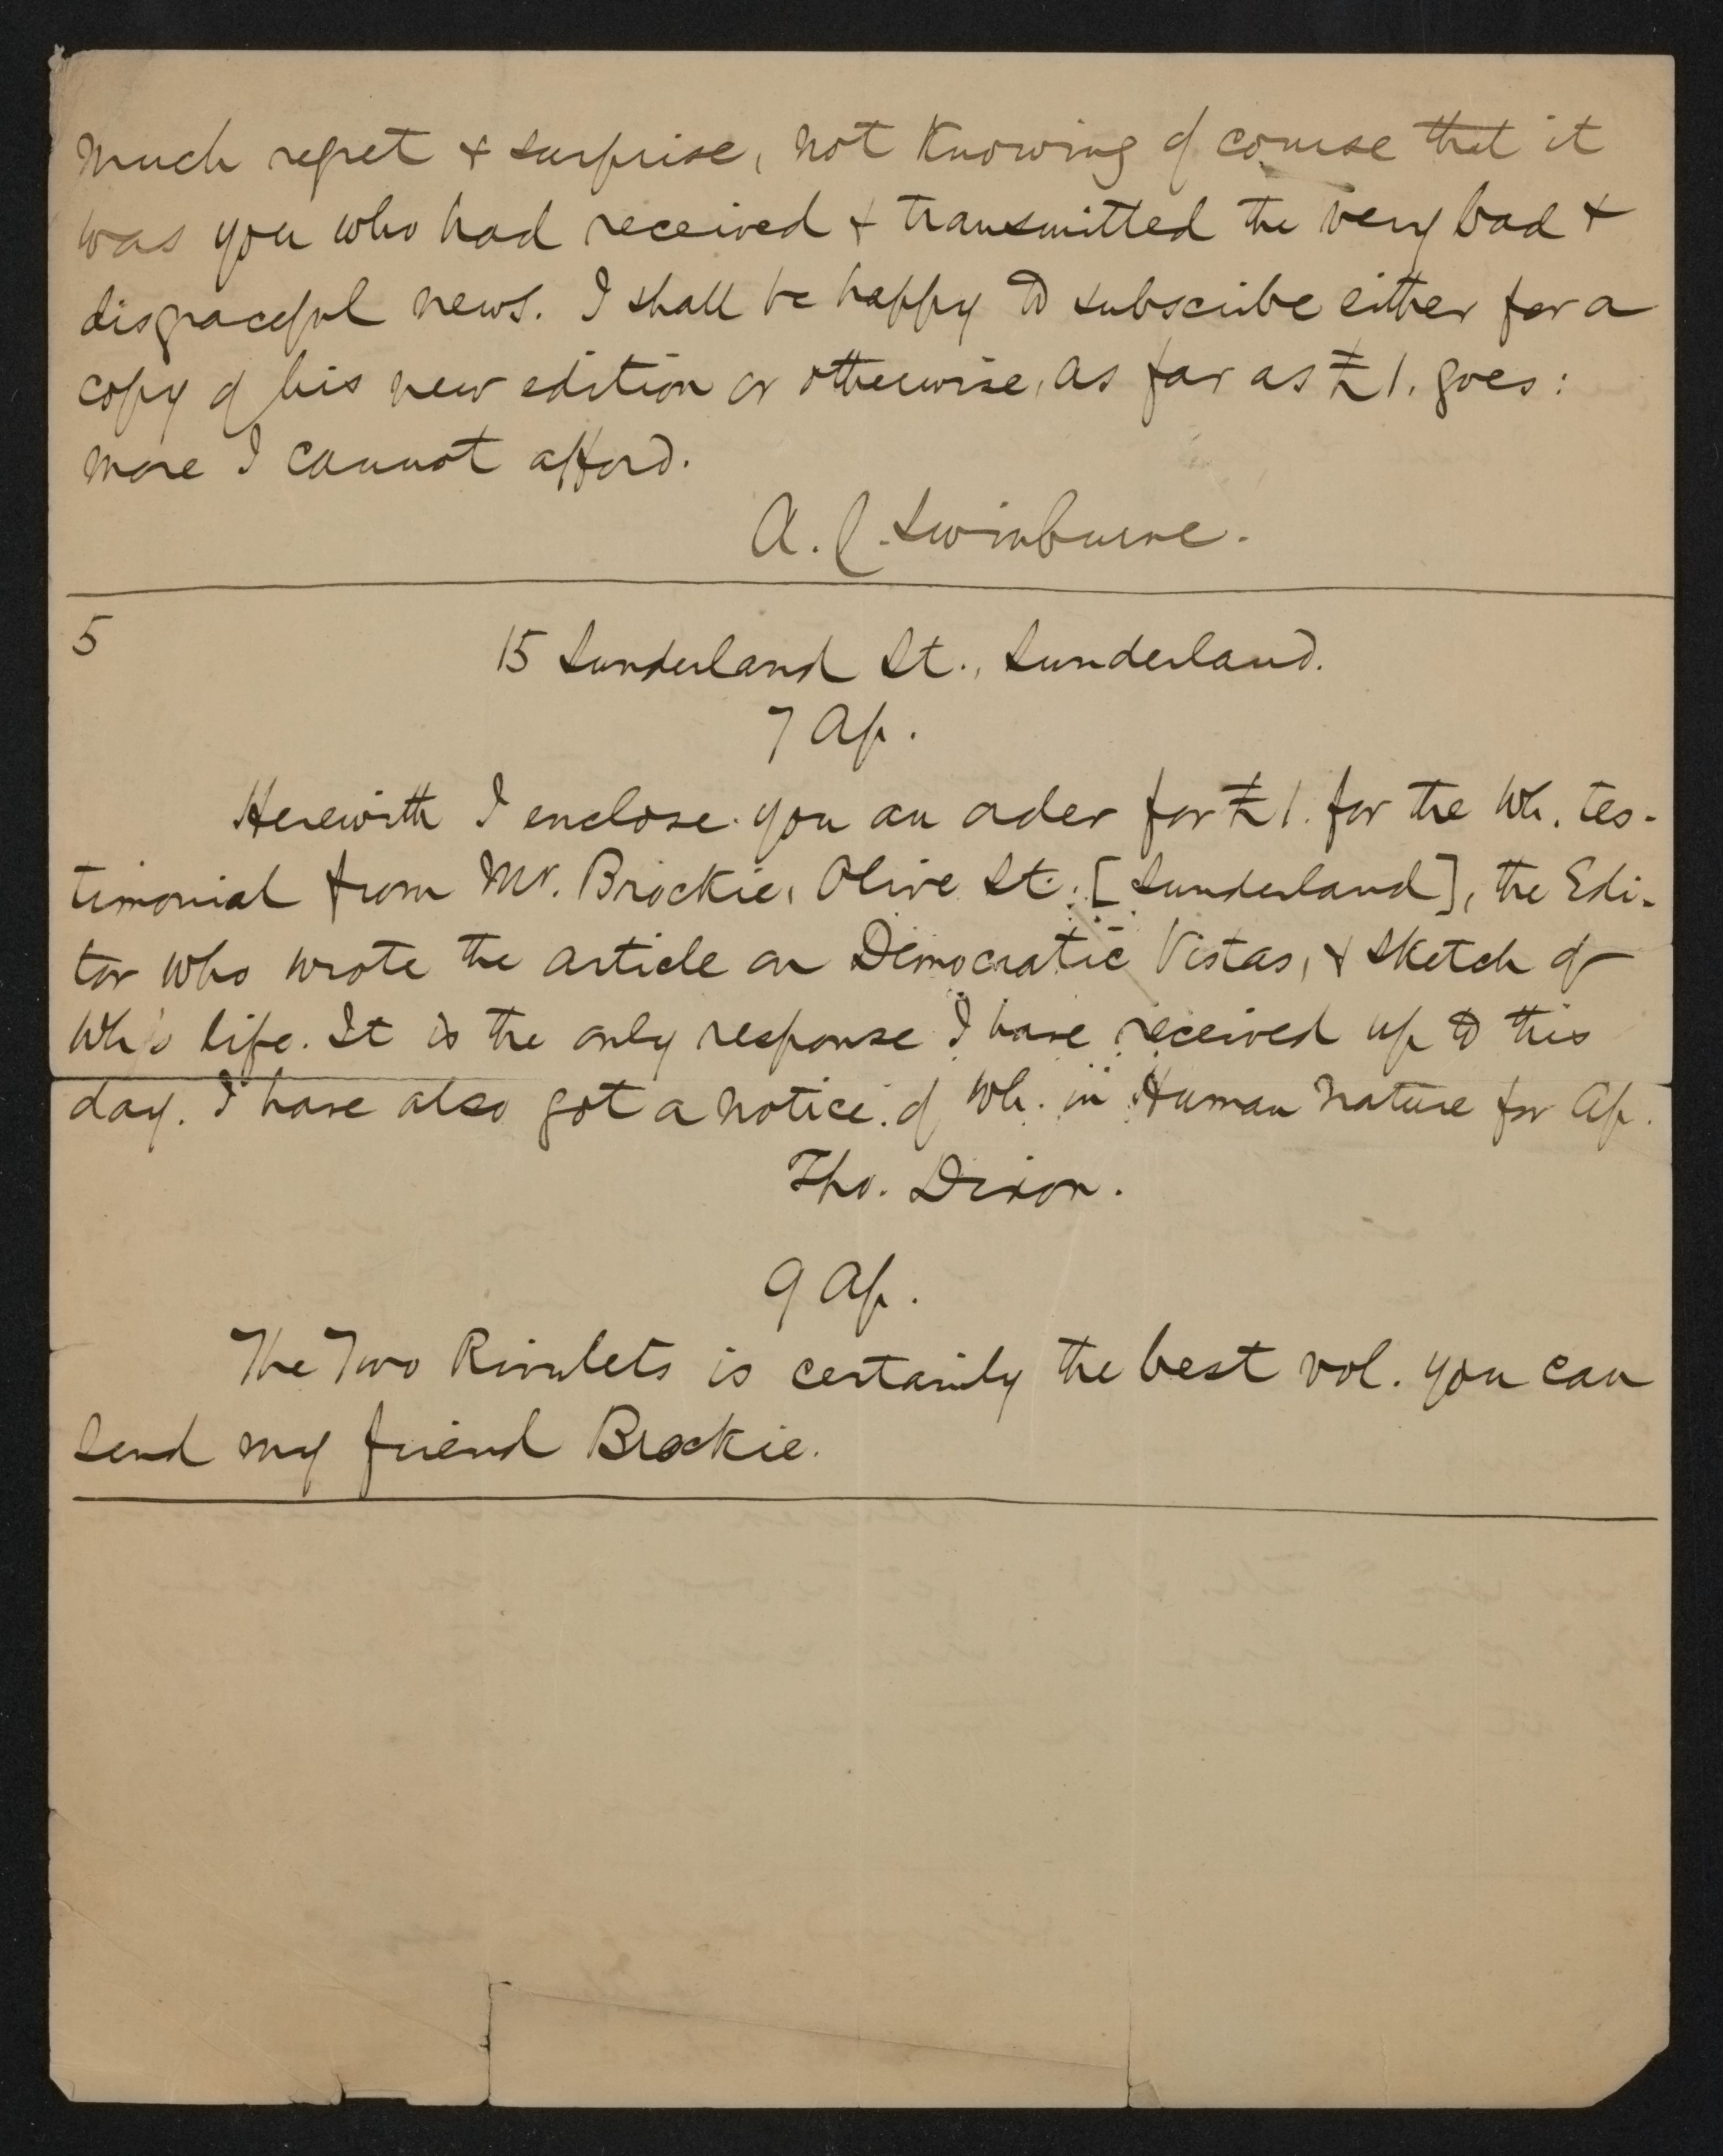 much regret & surprise, not knowing of course that it
was you who had received & transmitted the very bad &
disgraceful news. I shall be happy to subscribe either for a
copy of his new edition or otherwise, as far as £1. goes:
more I cannot afford.
A. C. Swinburne.
5
15 Sunderland St., Sunderland.
7 Ap.
Herewith I enclose you an order for £1. for the Wh. tes-
timonial from Mr. Brockie, Olive St. [Sunderland], the Edi-
tor who wrote the article on Democratic Vistas, & sketch of
Wh's life. It is the only response I have received up to this
day. I have also got a notice of Wh. in Human Nature for Ap.
Tho. Dixon.
9 Ap.
The Two Rivulets is certainly the best vol. you can
send my friend Brockie.